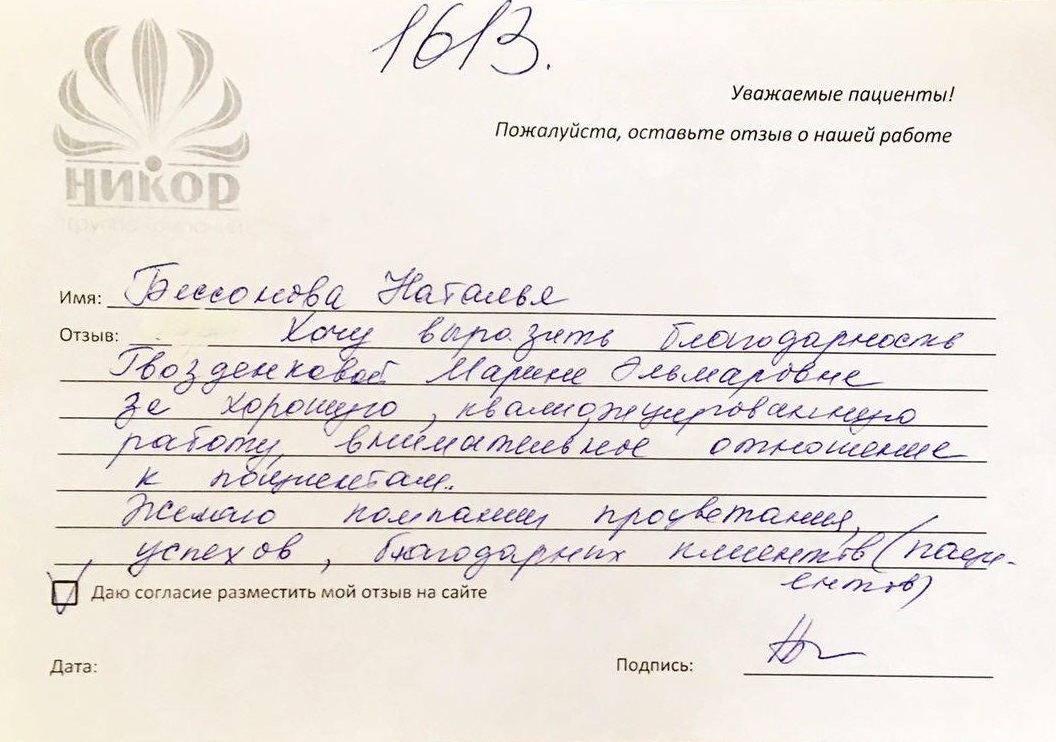 1613.
НИКОР
Уважаемые пациенты!
Пожалуйста, оставьте отзыв о нашей работе
Имя: Бессонова Наталья
Отзыв: Хочу выразить благодарность
Гвозденковой Марине Эльмаровне
за хорошую, квалифицированную
работу, внимательное отношение
к пациентам.
Желаю компании процветания,
успехов, благодарных клиентов (паци-
ентов)
Даю согласие разместить мой отзыв на сайте
Дата:
Подпись: